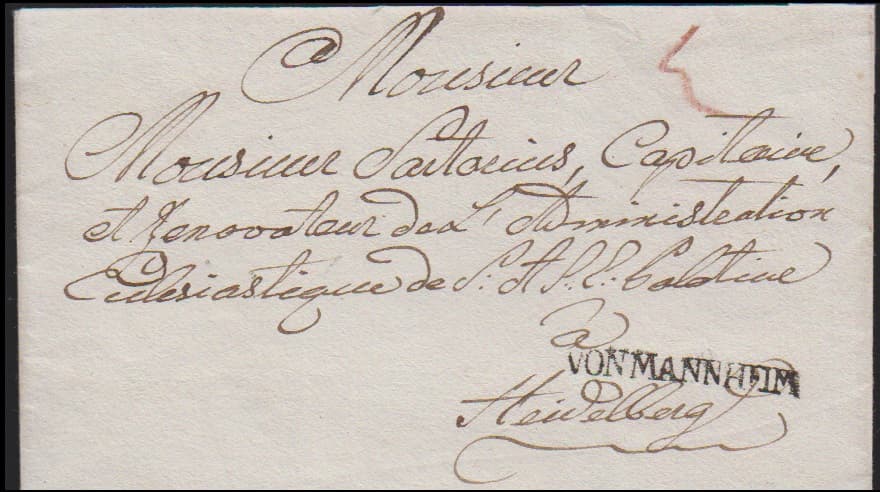 Monsieur
Monsieur Sartorius, Capitaine,
et Renovateur de L' Administration
Eclesiastique de S. A. S. E. Palatine
à
VON MANNHEIM
Heidelberg